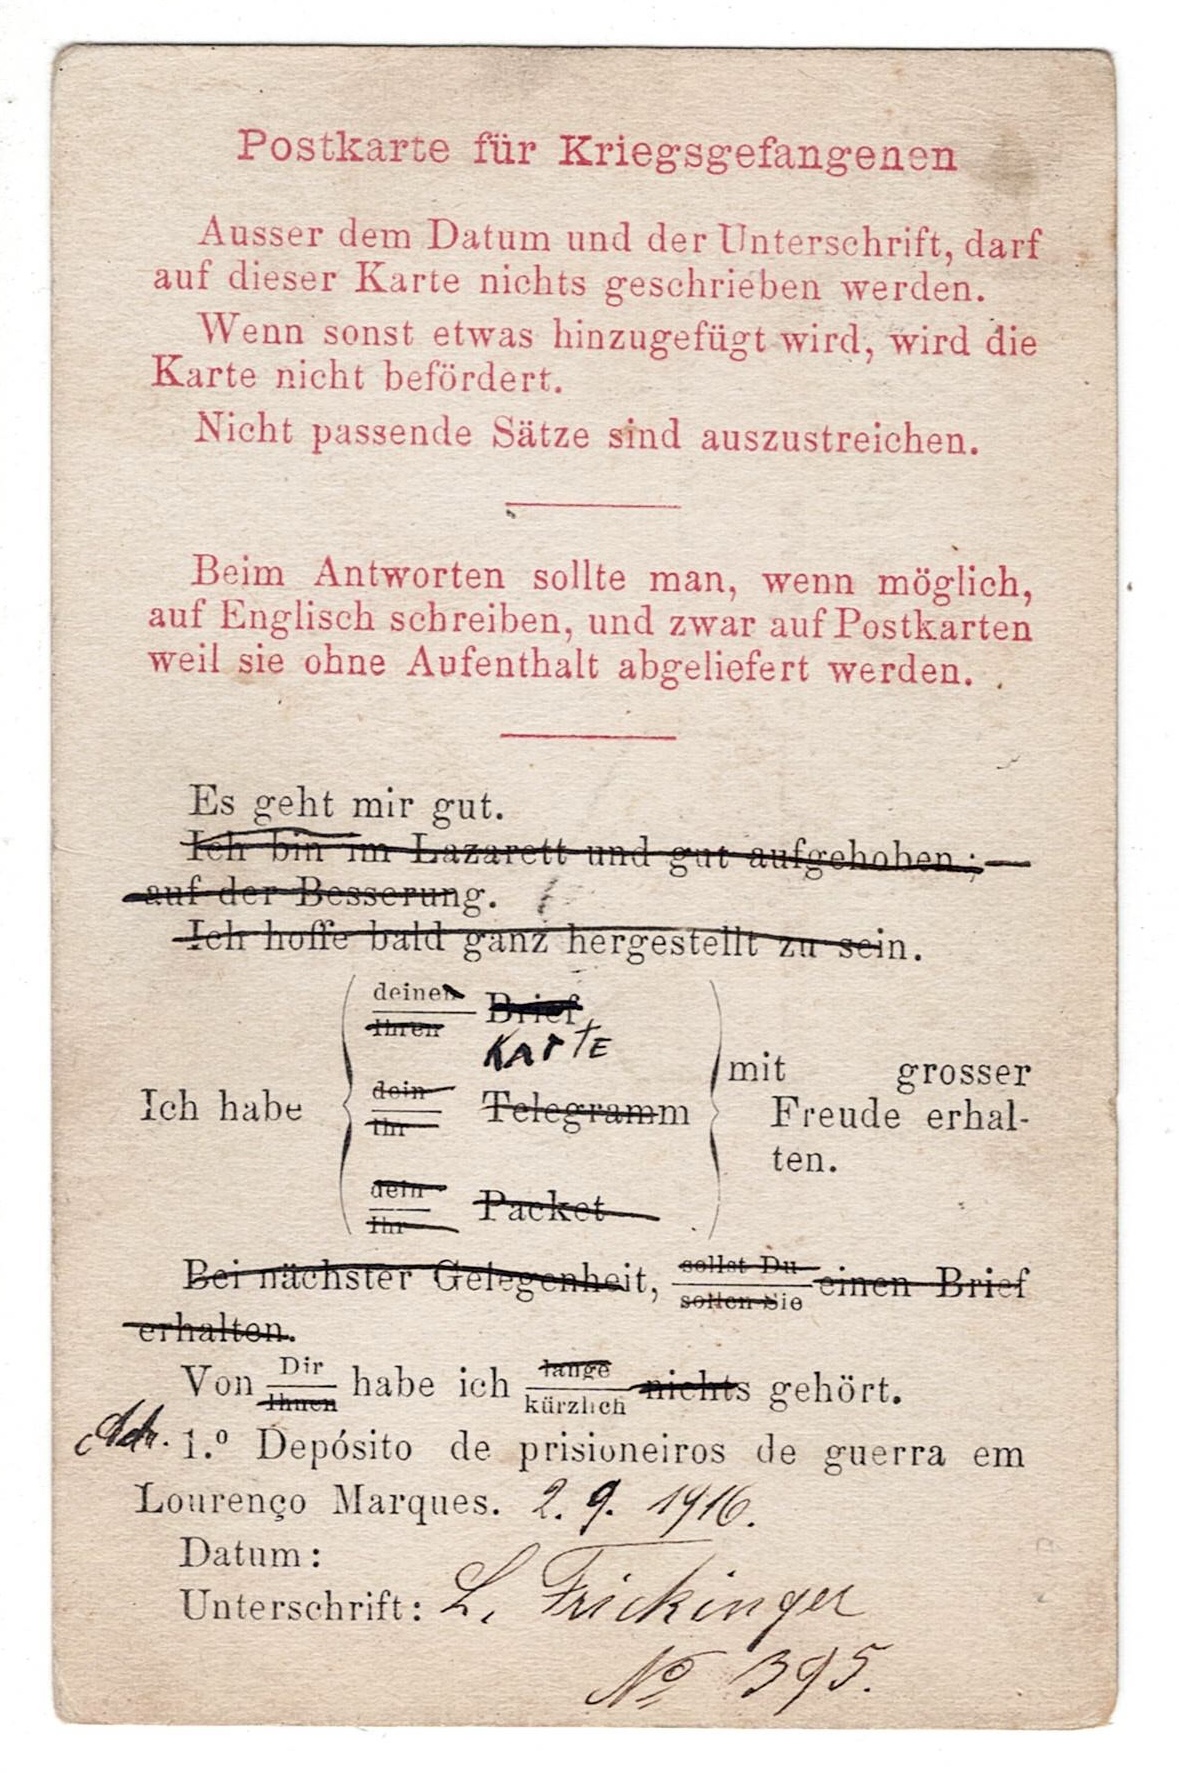 Postkarte für Kriegsgefangenen
Ausser dem Datum und der Unterschrift, darf
auf dieser Karte nichts geschrieben werden.
Wenn sonst etwas hinzugefügt wird, wird die
Karte nicht befördert.
Nicht passende Sätze sind auszustreichen.
Beim Antworten sollte man, wenn möglich,
auf Englisch schreiben, und zwar auf Postkarten
weil sie ohne Aufenthalt abgeliefert werden.
Es geht mir gut.
Ich bin im Lazarett und gut aufgehoben ;
auf der Besserung.
Ich hoffe bald ganz hergestellt zu sein.
deinen Brief
Ihren
KARTE
mit grosser
dein
Ich habe Telegramm Freude erhal-
Ihr
ten.
dein
Packet
Ihr
Bei nächster Gelegenheit, sollst Du einen Brief
sollen Sie
erhalten.
Von Dir habe ich lange nichts gehört.
Ihnen kürzlich
Adr. 1.º Depósito de prisioneiros de guerra em
Lourenço Marques. 2. 9. 1916.
Datum:
Unterschrift: L. Frickinger
Nº 395.